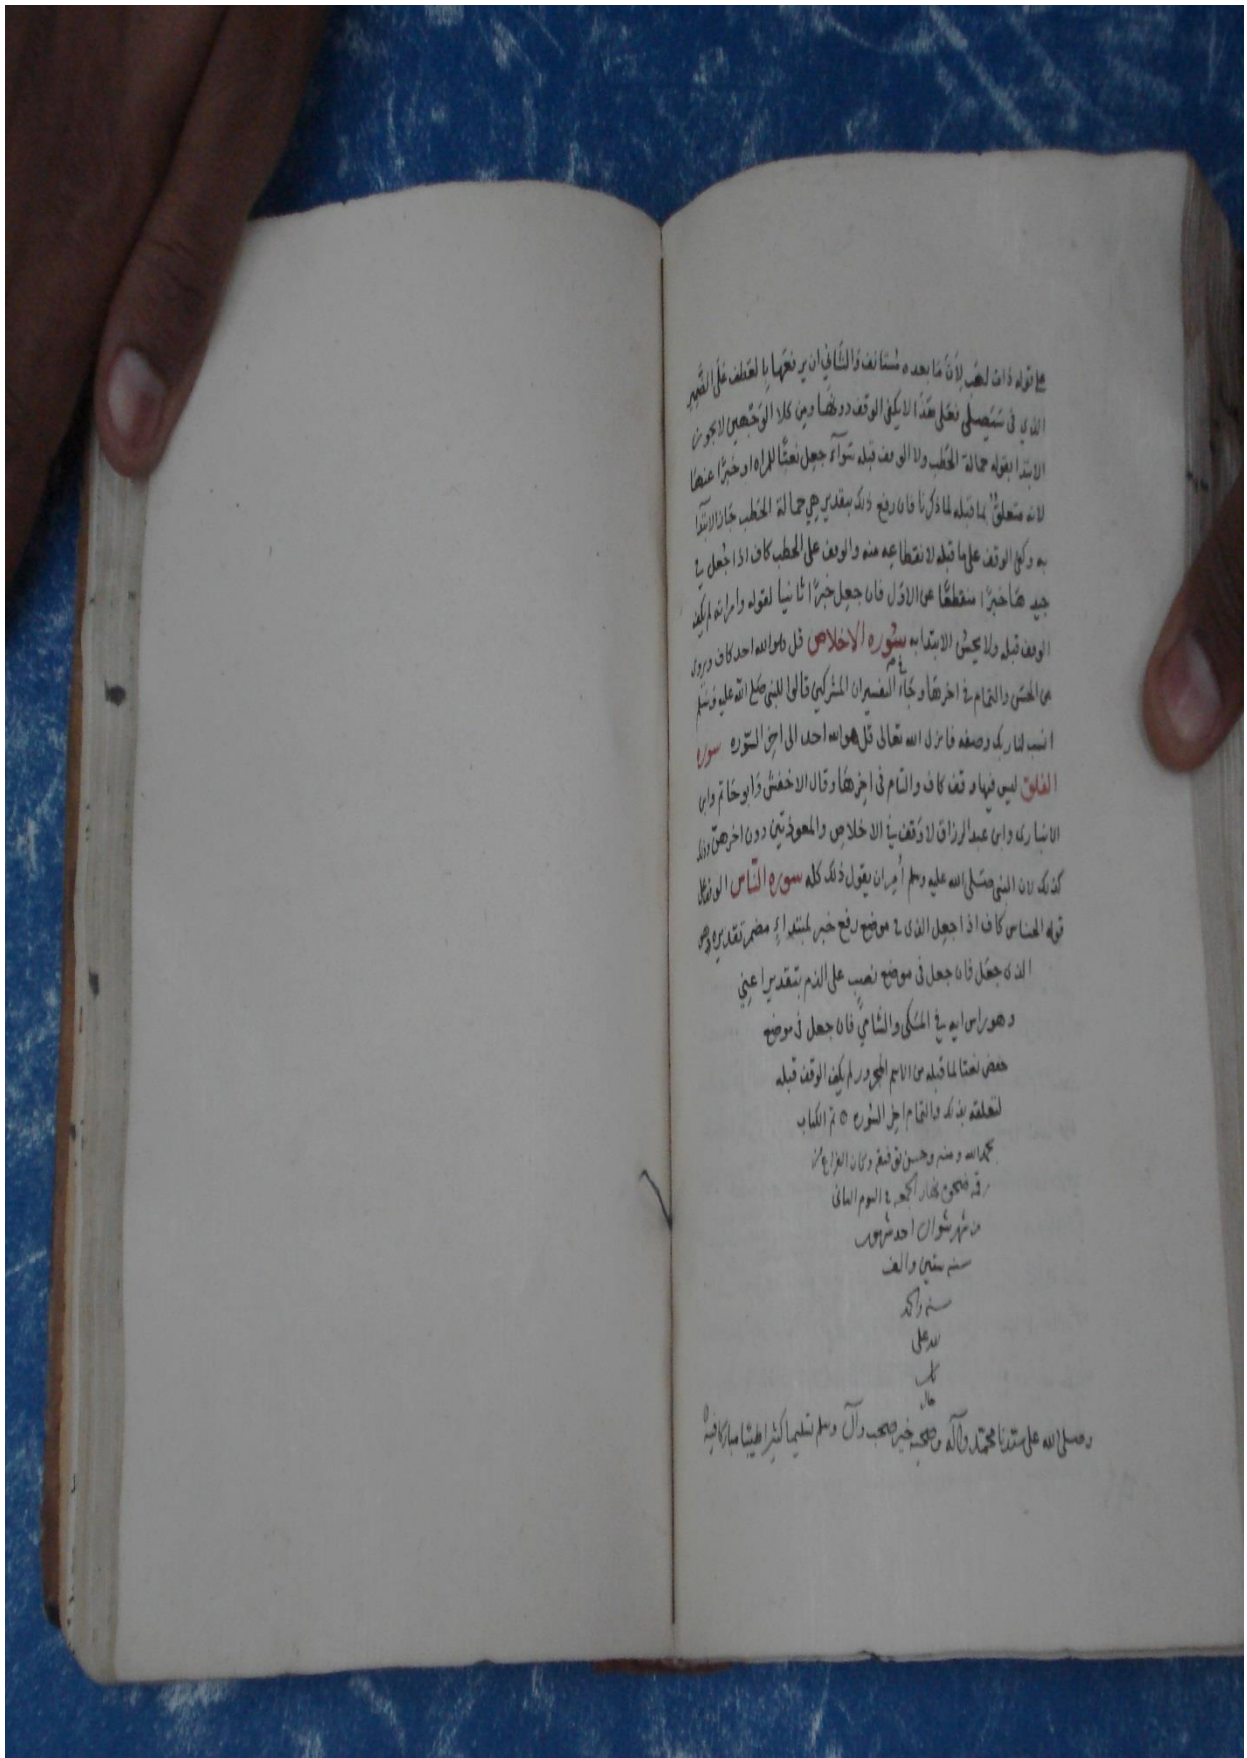 على قوله ذات لهب لأن ما بعده مستانف والثاني ان يرفعها بالعطف على الضمير
الذي في سيصلى فعلى هذا لا يكفي الوقف دونها ومن كلا الوجهين لا يجوز
الابتدا بقوله حمالة الحطب ولا الوقف قبله سوآء جعل نعتا للمراه او خبرا عنها
لانه متعلق بما قبله لما ذكرنا فان رفع ذلك بتقدير هي حمالة الحطب جاز الابتدا
به وكفى الوقف على ما قبله لانقطاعه منه والوقف على الحطب كاف اذا جعل في
جيدها خبرا منقطعا من الاول فان جعل خبرا ثانيا لقوله وامراته لم يكف
الوقف قبله ولا يحسن الابتدا به سوره الاخلاص قل هو الله احد كاف ويروى
عن الحسن والتمام في اخرها وجاء في التفسير ان المشركين قالوا للنبي صلى الله عليه وسلم
انسب لنا ربك وصفه فانزل الله تعالى قل هو الله احد الى اخر السوره سوره
الفلق ليس فيها وقف كاف والتام في اخرها وقال الاخفش وابو حاتم وابن
الانبارى وابن عبد الرزاق لا وقف في الاخلاص والمعوذتين دون اخرهن وذلك
كذلك لان النبي صلى الله عليه وسلم أمر ان يقول ذلك كله سوره الناس الوقف على
قوله الخناس كاف اذا جعل الذى في موضع رفع خبر لمبتداء مضمر تقديره هو
الذى جعل فان جعل فى موضع نصب على الذم بتقدير اعني
وهو راس ايه في المكى والشامي فان جعل فى موضع
خفض نعتا لما قبله من الاسم المجرور لم يكف الوقف قبله
لتعلقه بذلك والتمام اخر السوره ٥ تم الكتاب
بحمد الله ومنه وحسن توفيقه وكان الفراغ من
رقه ضحوة نهار الجمعه في اليوم الثانى
من شهر شوال احد شهور
سنه ستين والف
سنه والحمد
لله على
كل
حال
وصلى الله على سيدنا محمد وآله وصحبه خير صحب وآل وسلم تسليما كثيرا طيبا مباركا فيه